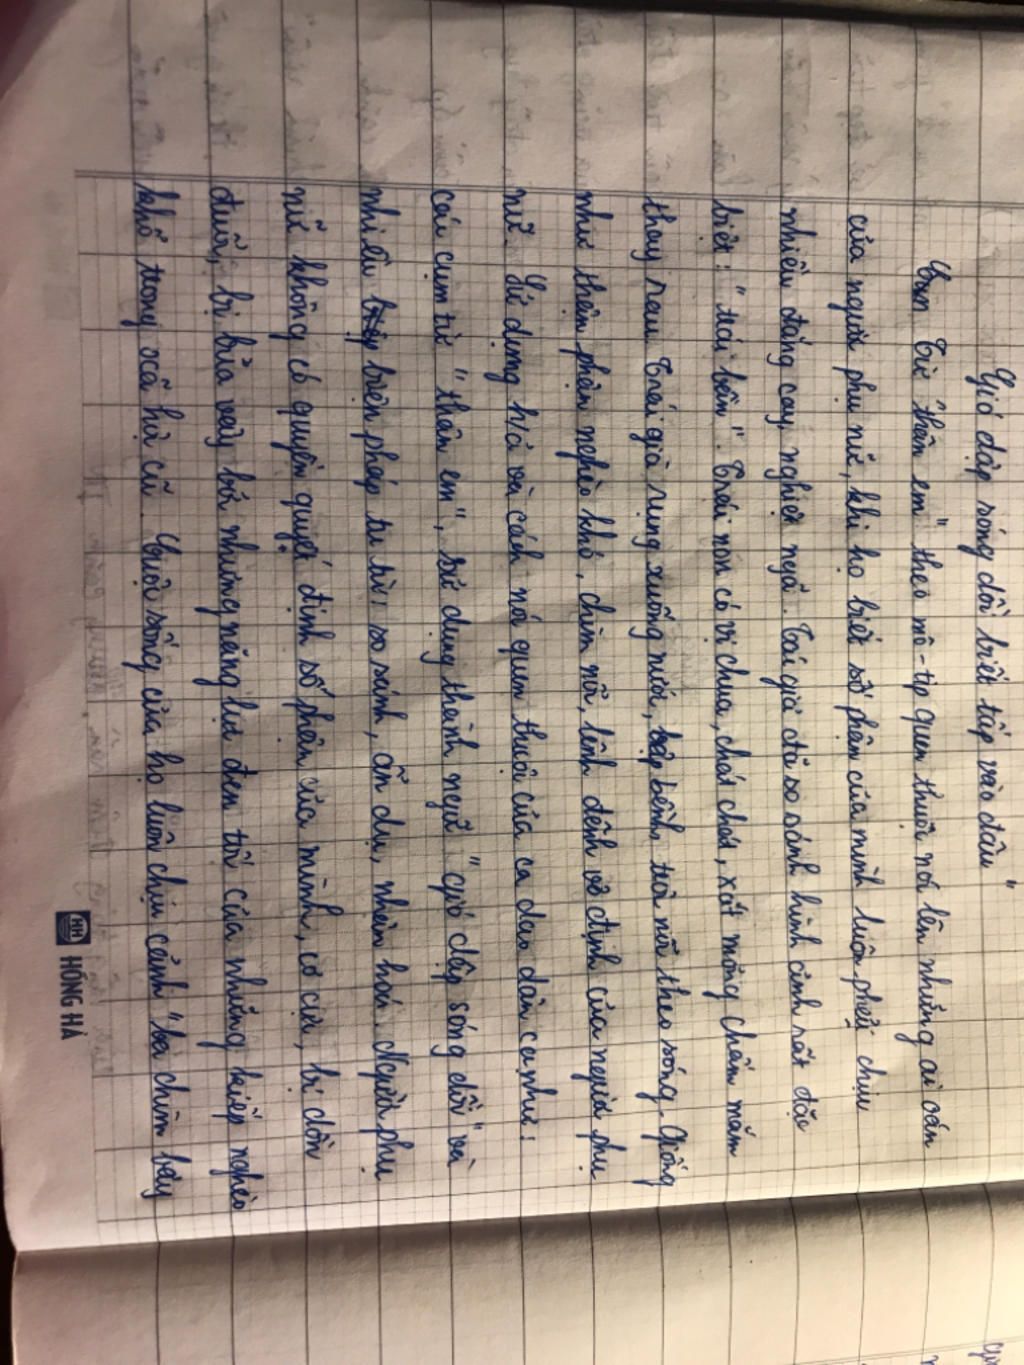 Gió dập sóng dồi biết tấp vào đâu"
Cụm từ "thân em" theo mô-típ quen thuộc nói lên những ai oán
của người phụ nữ, khi họ biết số phận của mình luôn phải chịu
nhiều đắng cay, nghiệt ngã. Tác giả đã so sánh hình ảnh rất đặc
biệt: "trái bần". Trái non có vị chua, chát chát, xắt mỏng chấm mắm
thay rau. Trái già rụng xuống nước, bập bềnh trôi nổi theo sóng. Giống
như thân phận nghèo khó, chìm nổi, lênh đênh vô định của người phụ
nữ. Sử dụng h/ả và cách nói quen thuộc của ca dao dân ca như:
các cụm từ "thân em", sử dụng thành ngữ "gió dập sóng dồi" và
nhiều biện pháp tu từ: so sánh, ẩn dụ, nhân hoá. Người phụ
nữ không có quyền quyết định số phận của mình, cơ cực, bị dồn
đuổi, bị bủa vây bởi những năng lực đen tối của những kiếp nghèo
khổ trong xã hội cũ. Cuộc sống của họ luôn chịu cảnh "ba chìm bảy
HỒNG HÀ